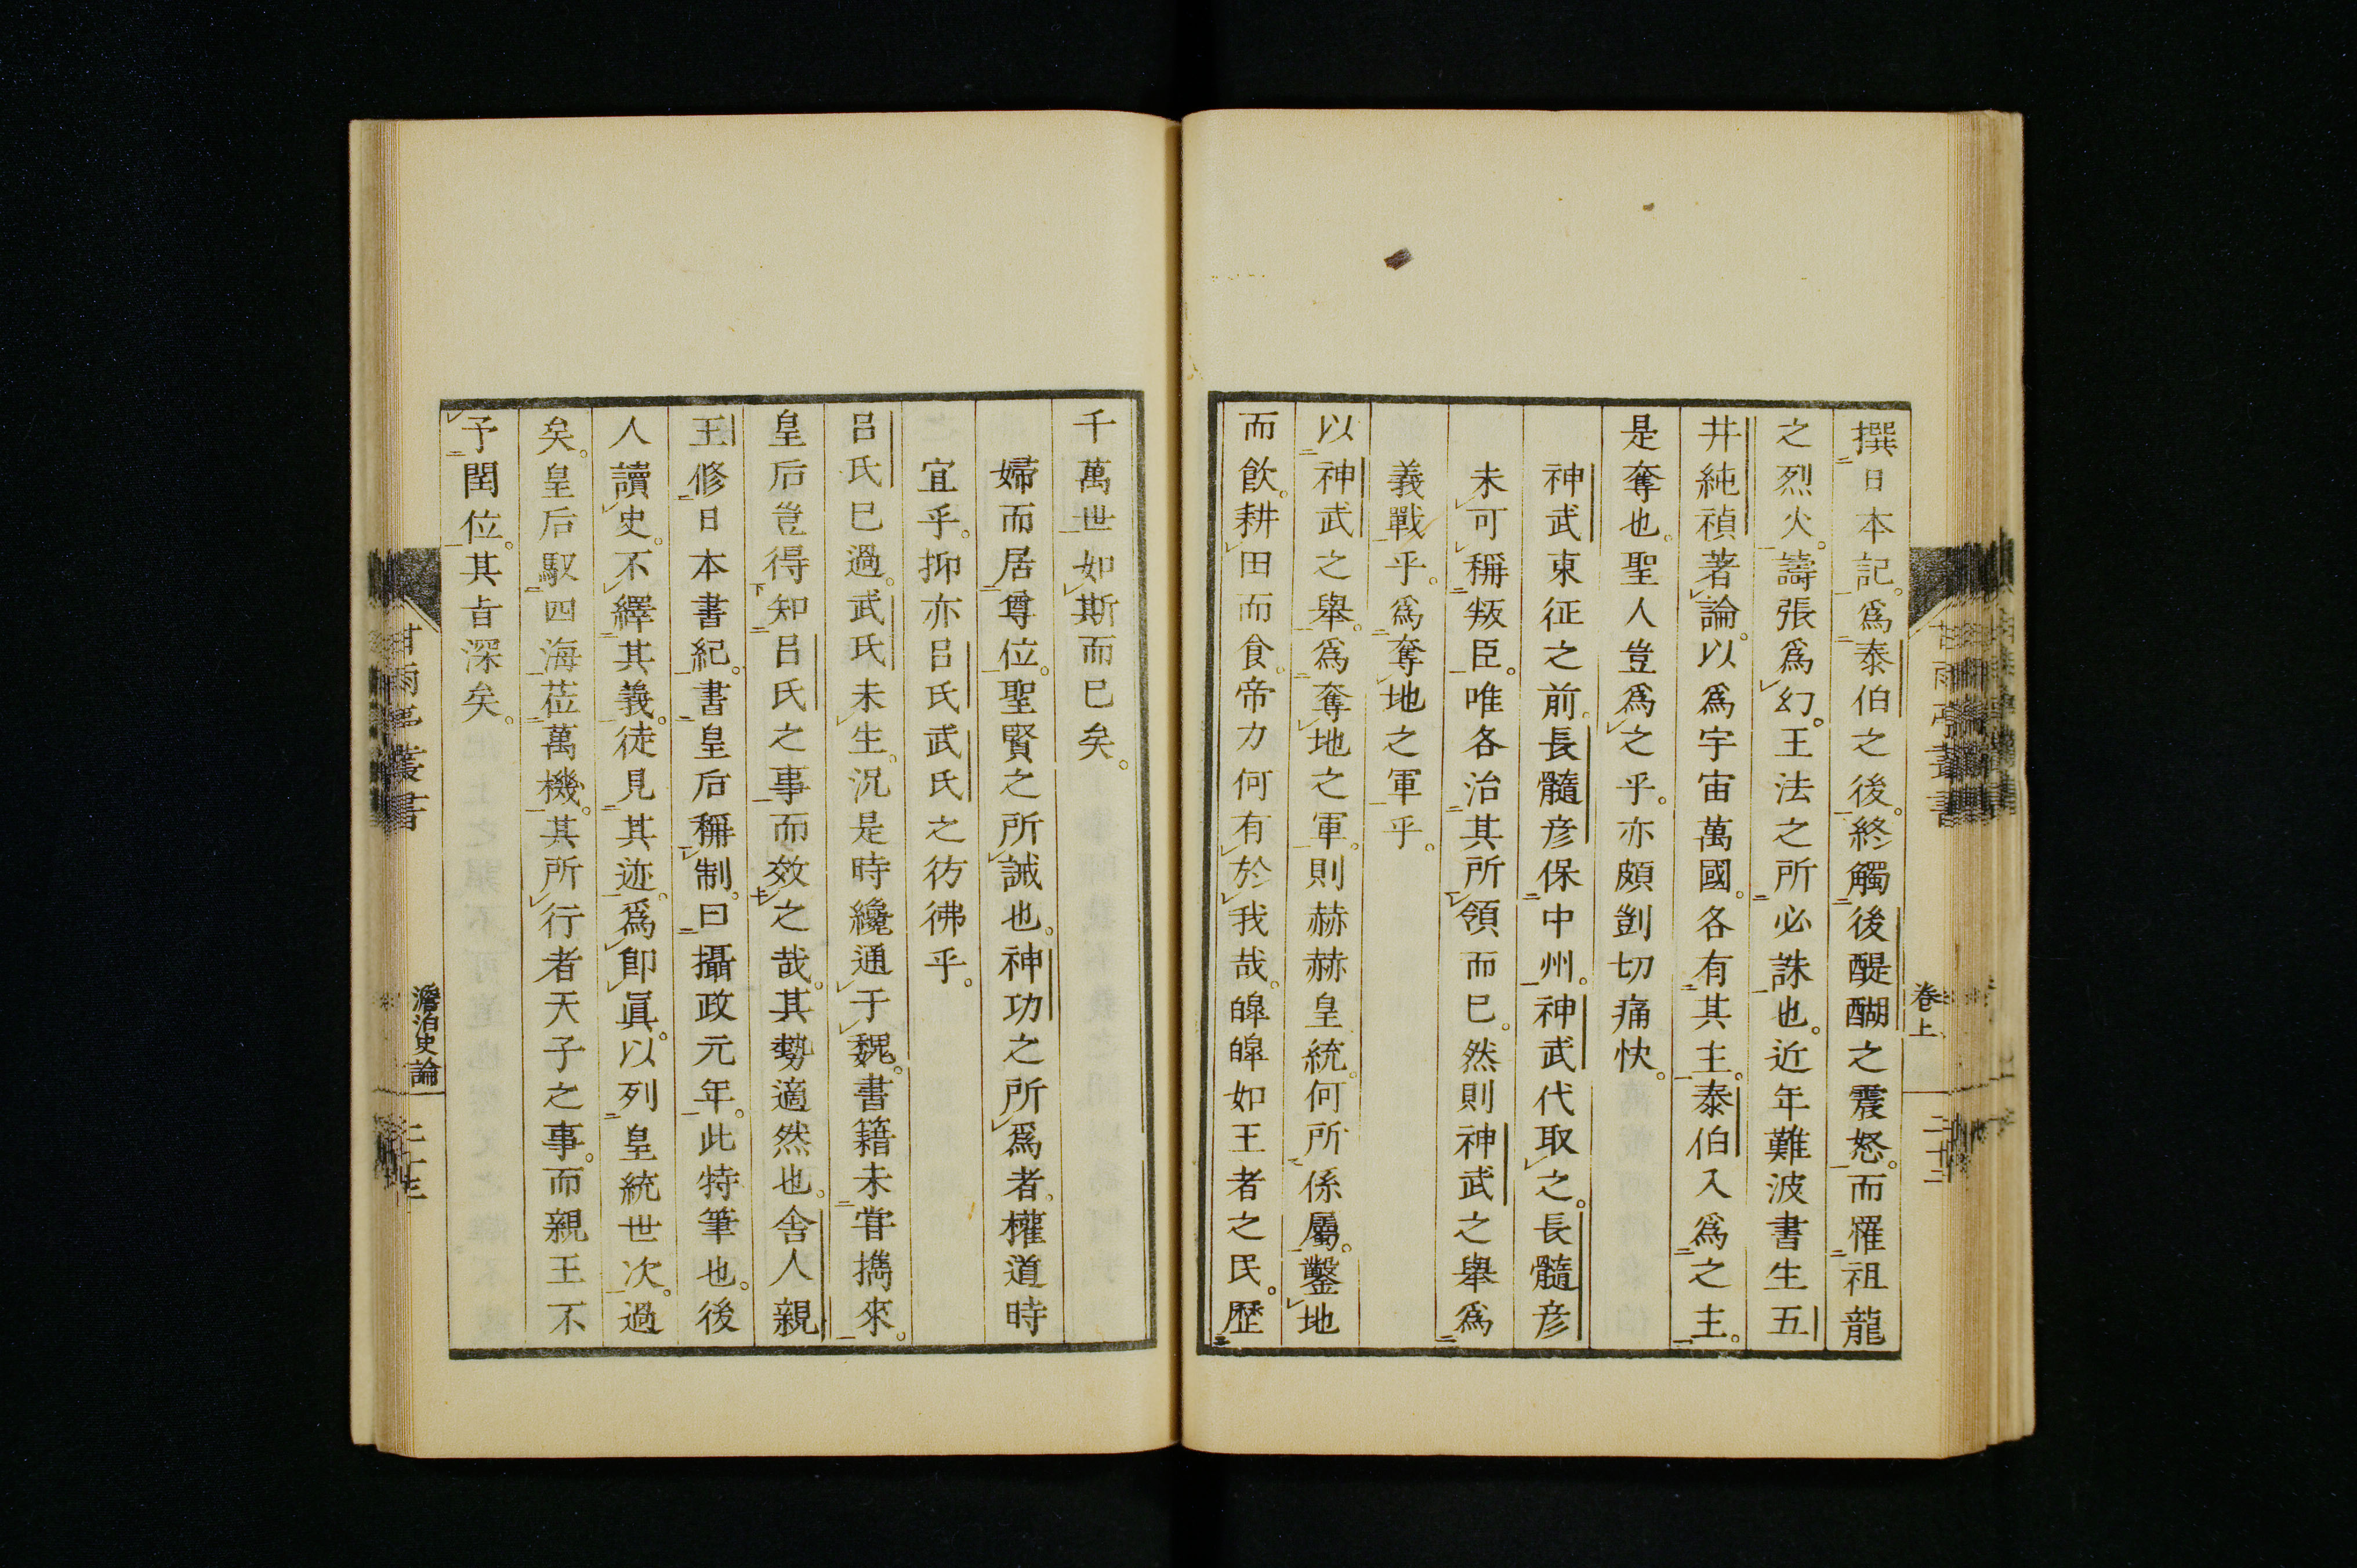 撰日本記。爲泰伯之後。終觸後醍醐之震怒。而罹祖龍
之烈火。譸張爲幻。王法之所必誅也。近年難波書生五
井純禎著論。以爲宇宙萬國。各有其主。泰伯入爲之主。
是奪也。聖人豈爲之乎。亦頗剴切痛快。
神武東征之前。長髓彦保中州。神武代取之。長髓彦
未可稱叛臣。唯各治其所領而已。然則神武之舉爲
義戰乎。爲奪地之軍乎。
以神武之舉。爲奪地之軍。則赫赫皇統。何所係屬。鑿地
而飲。耕田而食。帝力何有於我哉。皥皥如王者之民。歷
卷上
二十二
千萬世如斯而已矣。
婦而居尊位。聖賢之所誡也。神功之所爲者。權道時
宜乎。抑亦呂氏武氏之彷彿乎。
呂氏已過。武氏未生。況是時纔通于魏。書籍未甞擕來。
皇后豈得知呂氏之事而效之哉。其勢適然也。舍人親
王修日本書紀。書皇后稱制。曰攝政元年。此特筆也。後
人讀史。不繹其義。徒見其迹。爲卽眞。以列皇統世次。過
矣。皇后馭四海莅萬機。其所行者天子之事。而親王不
予閏位。其旨深矣。
甘雨亭叢書
澹泊史論